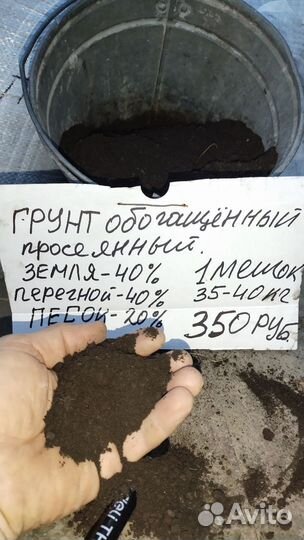 ГРУНТ обогащённый
просеянный.
ЗЕМЛЯ-40% 1 МЕШОК
ПЕРЕГНОЙ-40% 35-40 кг
ПЕСОК-20% 350 РУБ
Avito